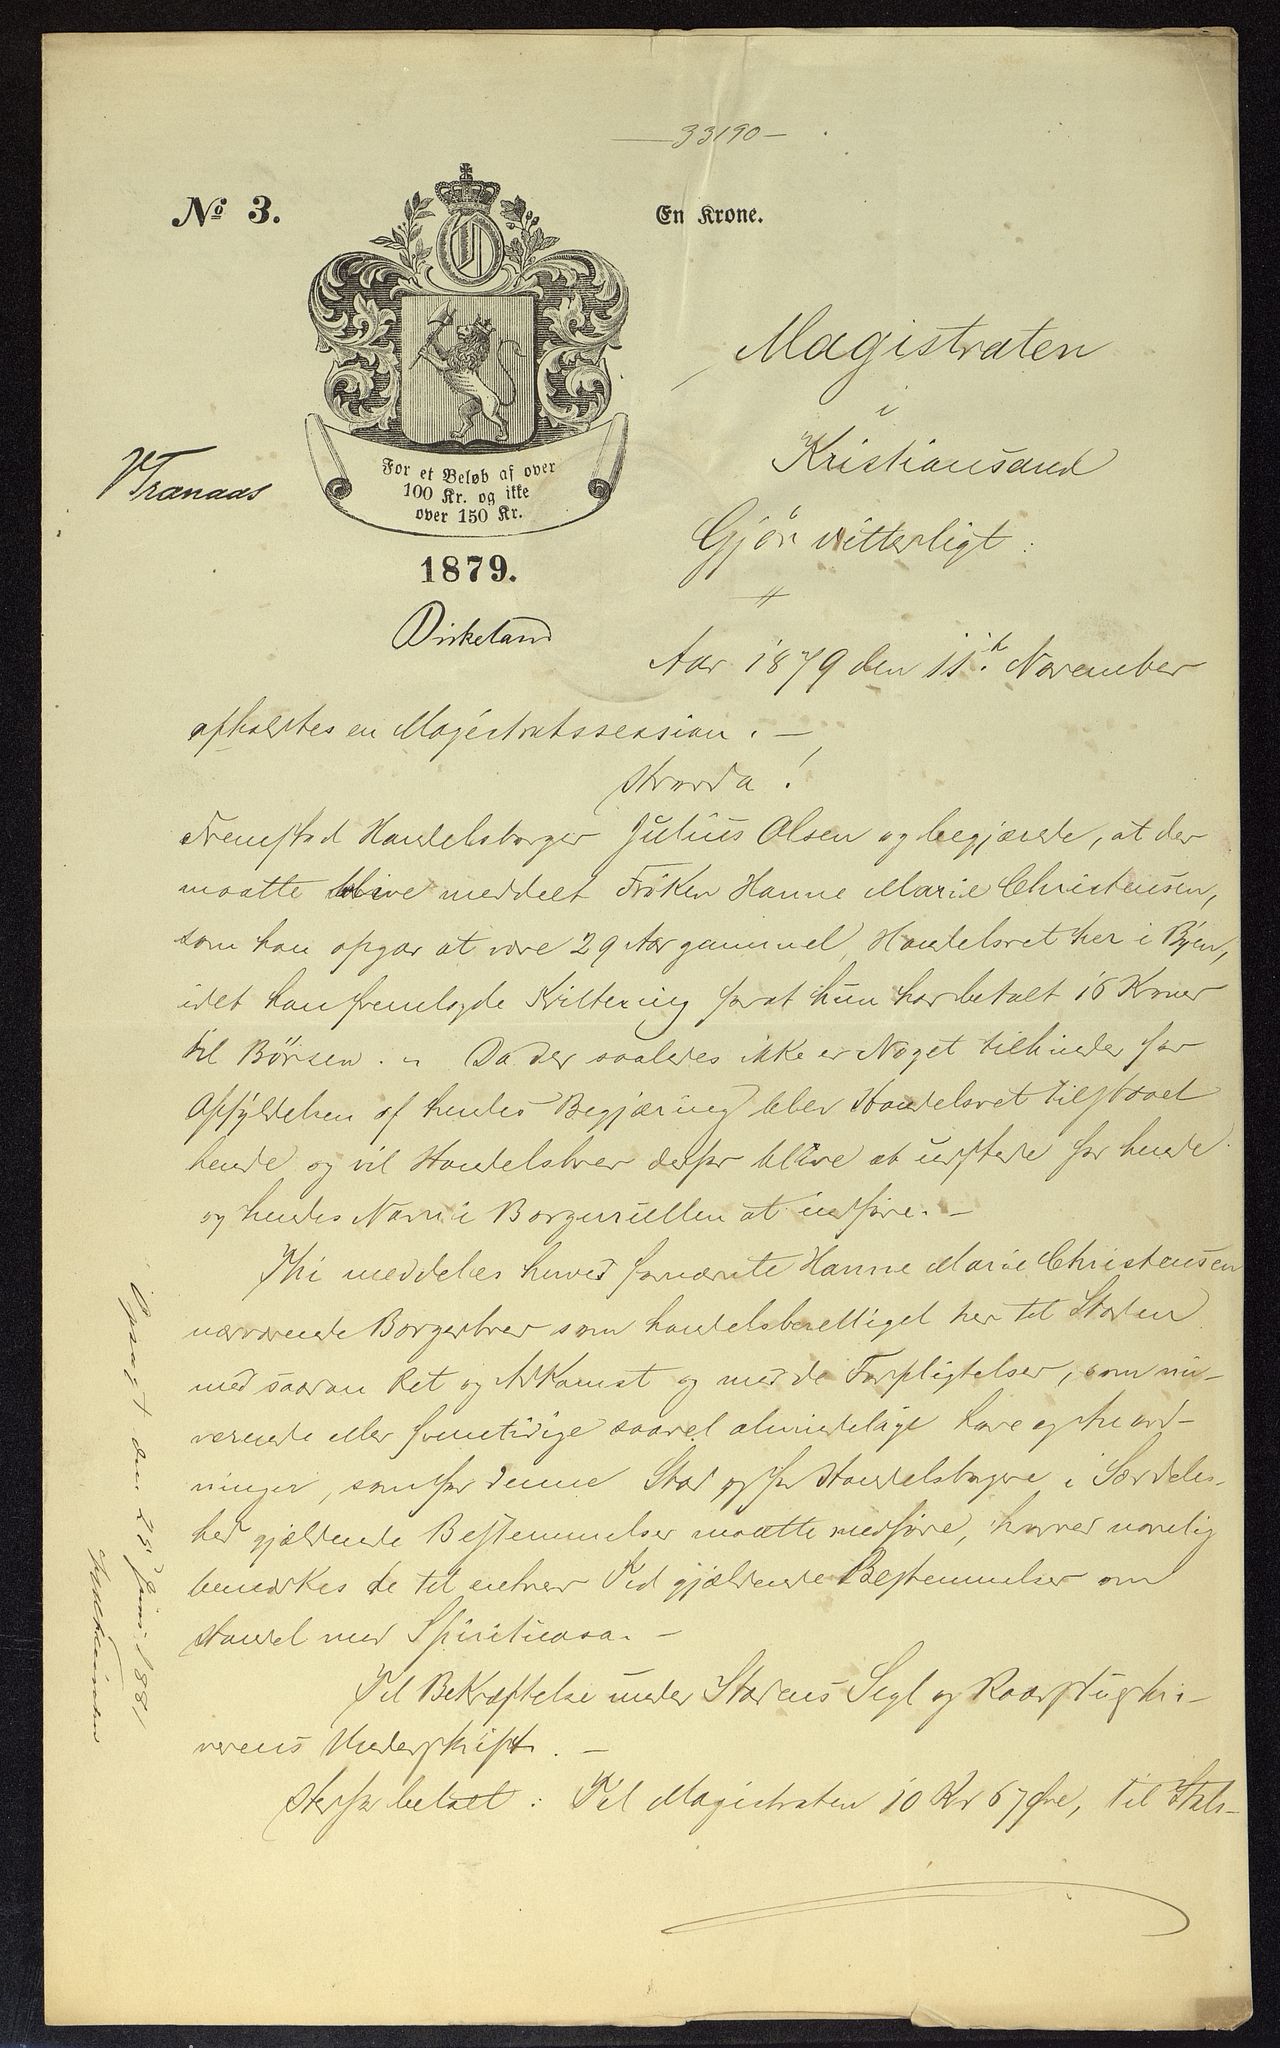 33190
No 3.
En Krone.
Magistraten
i
Kristianssand
Gjör vitterligt:
For et Beløb af over
100 Kr. og ikke
over 150 Kr.
VTranaas
1879.
Birkeland
Aar 1879 den 11te November
afholdtes en Magistratssession. —
Hvorda!
Fremstod Handelsborger Julius Olsen og begjærede, at der
maatte blive meddelt Frøken Hanne Marie Christensen,
som han opgav at være 29 Aar gammel, Handelsret her i Byen,
idet han fremlagde Kvittering for at hun har betalt 16 Kroner
til Börsen. — Da der saaledes ikke er Noget tilhinder for
Opfyldelsen af hendes Begjæring blev Handelsret tilstaaet
hende og vil Handelsbrev derfor blive at udstede for hende
og hendes Navn i Borgerrullen at indføre. —
Thi meddeles herved fornævnte Hanne Marie Christensen
nærværende Borgerbrev som handelsberettiget her til Staden
med saadan Ret og Adkomst og med de Forpligtelser, som nu-
værende eller fremtidige saavel almindelige Love og Anord-
ninger, som for denne Stad og for Handelsborgere i Særdeles-
hed gjældende Bestemmelser maatte medføre, hvorved navnlig
bemærkes de til enhver Tid gjældende Bestemmelser om
Handel med Spirituosa. —
Til Bekræftelse under Stadens Segl og Raadstuskri-
verens Underskrift. —
Herfor betalt: Til Magistraten 10 Kr 67 Øre, til Stats-
Opsagt den 25 Juni 1881